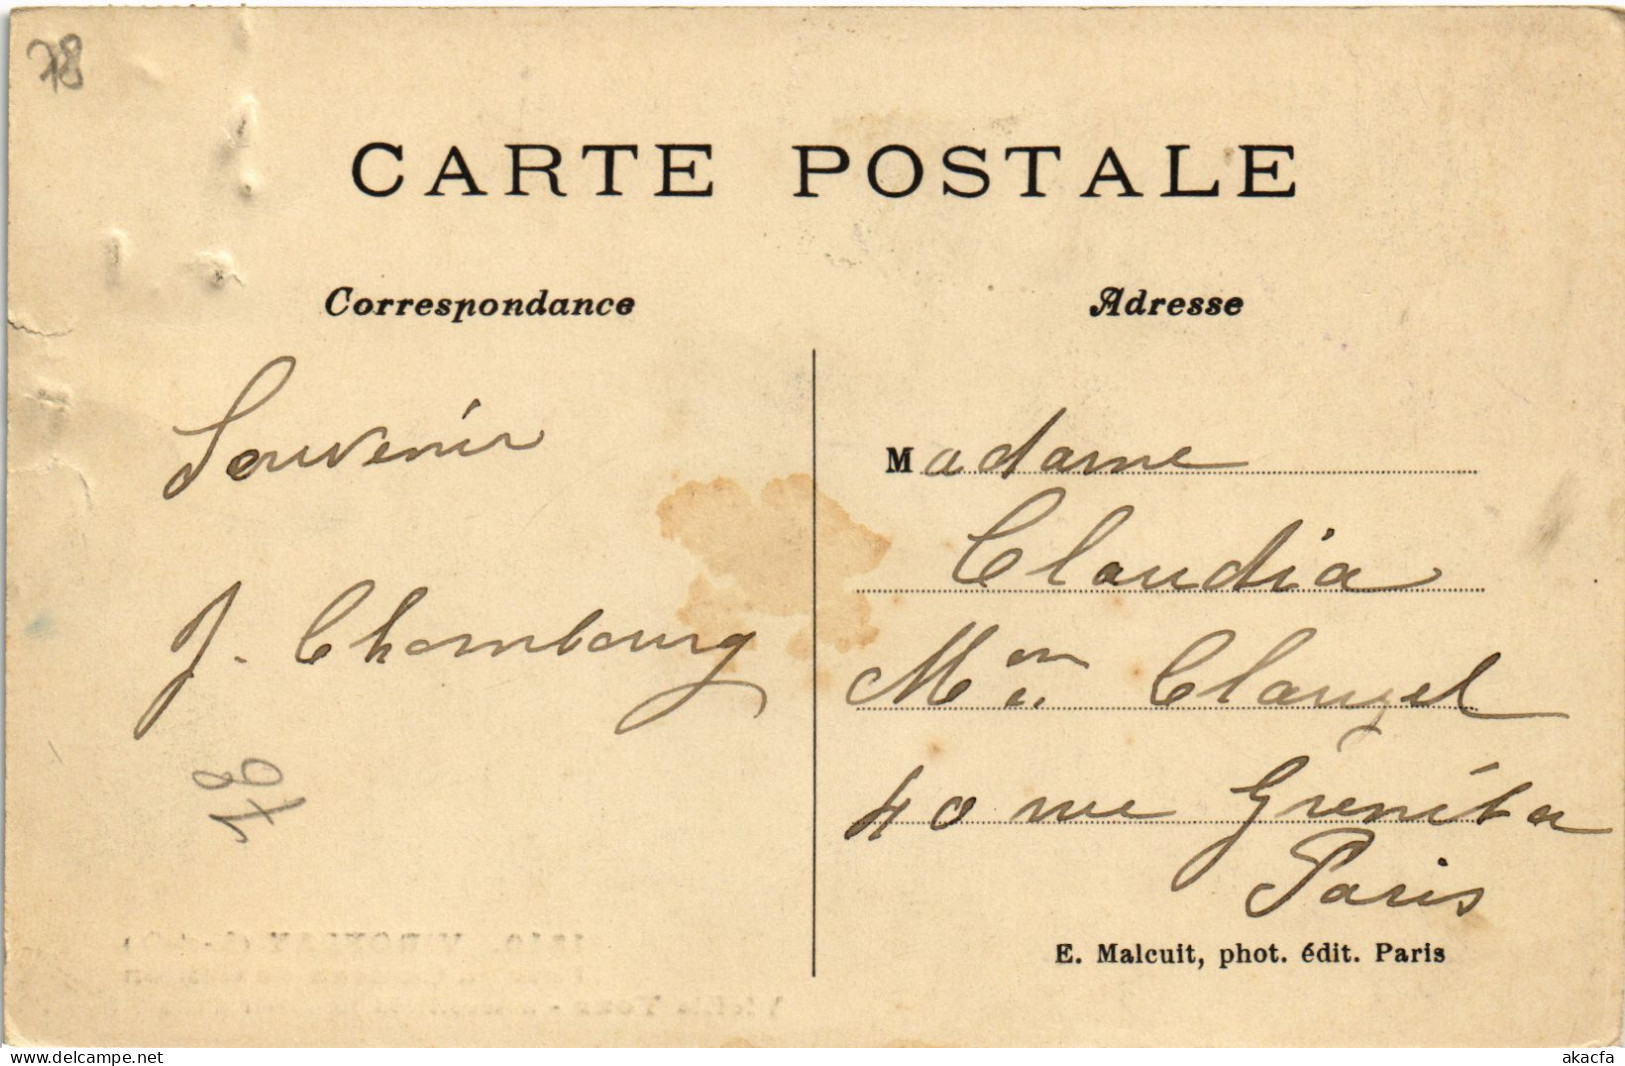 78
CARTE POSTALE
Correspondance
Adresse
Souvenir
J. Chambourg
78
Madame
Claudia
Mon Clauzel
40 rue Grenéta
Paris
E. Malcuit, phot. édit. Paris
delcampe.net
akacfa